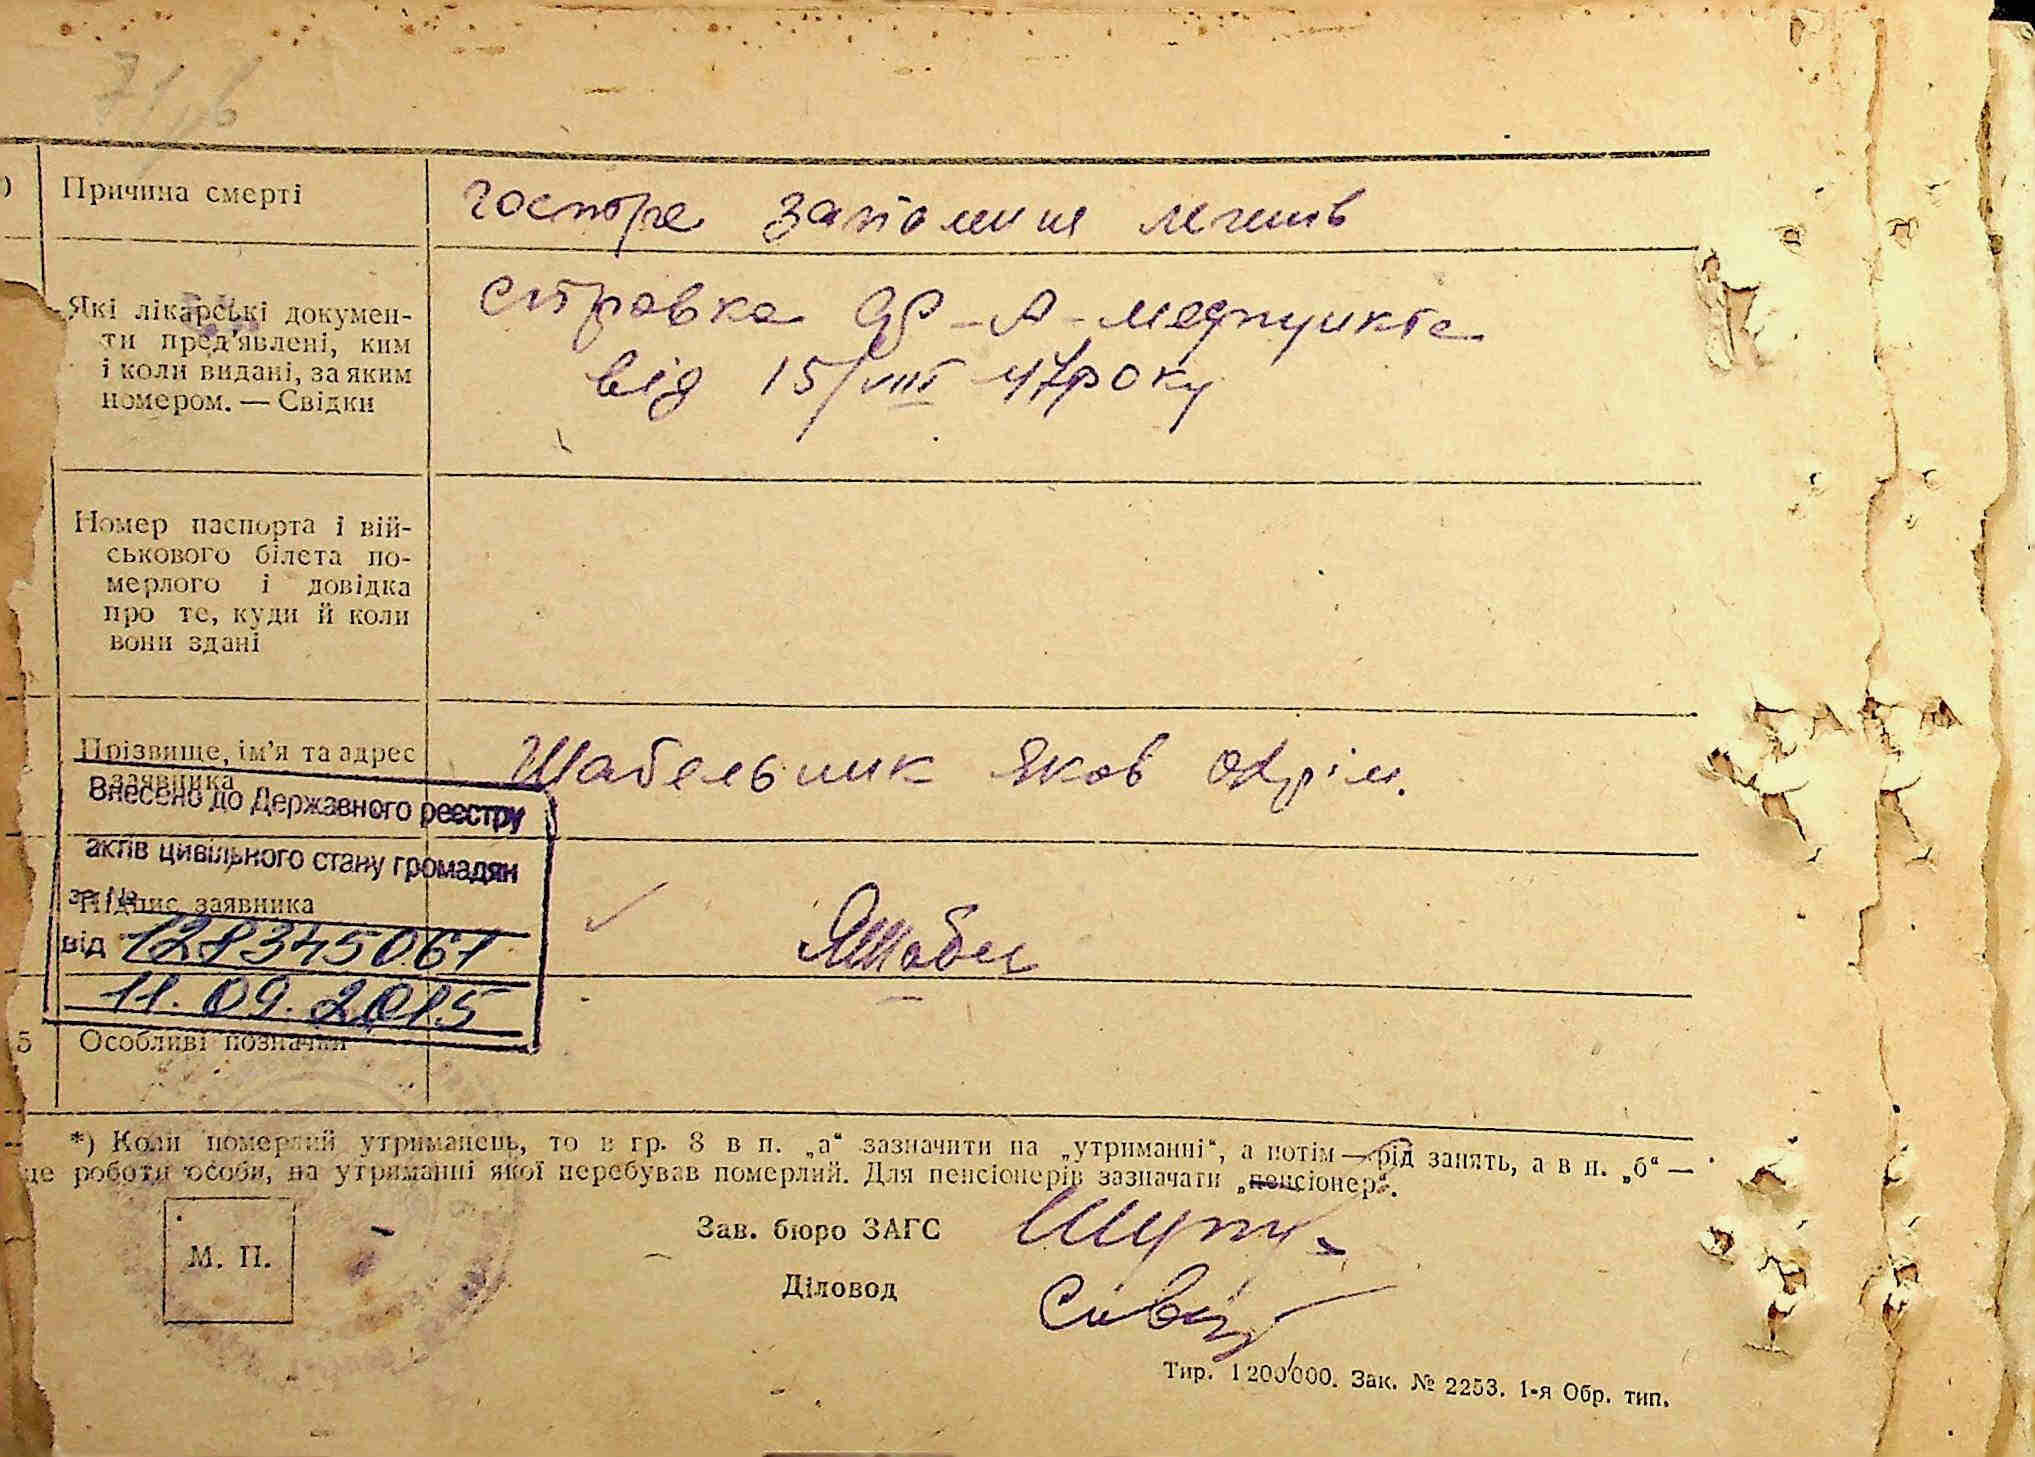 Причина смерті
гостре запаления легнів
Які лікарські докумен-
ти пред'явлені, ким
і коли видані, за яким
номером. — Свідки
справка Ф-А-медпункта
від 15/VIII 47 року
Номер паспорта і вій-
ськового білета по-
мерлого і довідка
про те, куди й коли
вони здані
Прізвище, ім'я та адрес
заявника
Шабельник Яков
Внесено до Державного реєстру
актів цивільного стану громадян
за №
Підпис заявника
від 128345061
11.09.2015
5 Особливі позначки
*) Коли померлий утриманець, то в гр. 8 в п. „а“ зазначити на „утриманні“, а потім — рід занять, а в п. „б“ —
це роботи особи, на утриманні якої перебував померлий. Для пенсіонерів зазначати „пенсіонер“.
М. П.
Зав. бюро ЗАГС
Діловод
Тир. 1200000. Зак. № 2253. 1-я Обр. тип.